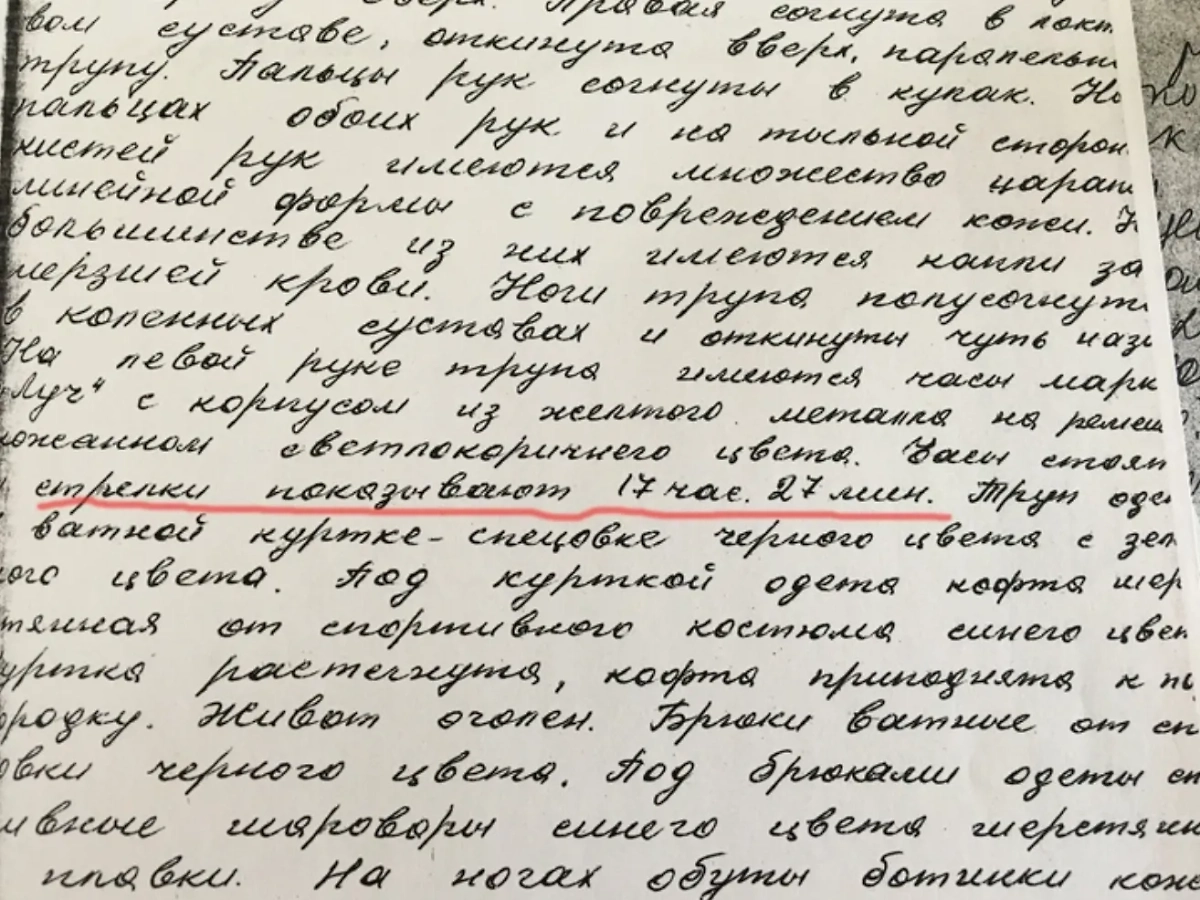 вверх. Правая согнута в локт
вом суставе, откинута вверх, параллельн
трупу. Пальцы рук согнуты в кулак. На
пальцах обоих рук и на тыльной сторон
кистей рук имеются множество царап
линейной формы с повреждением кожи. 
большинстве из них имеются капли за
мерзшей крови. Ноги трупа полусогнут
в коленных суставах и откинуты чуть наза
На левой руке трупа имеются часы марк
„Луч" с корпусом из желтого металла на ремеш
кожанном светлокоричнего цвета. Часы стоят
стрелки показывают 17 час. 27 мин. Труп оде
ватной куртке-спецовке черного цвета с зел
ого цвета. Под курткой одета кофта шер
тянная от спортивного костюма синего цвет
куртка растегнута, кофта приподнята к по
ородку. Живот оголен. Брюки ватные от сп
овки черного цвета. Под брюками одеты сп
ивные шаровары синего цвета шерстянн
плавки. На ногах обуты ботинки кожа